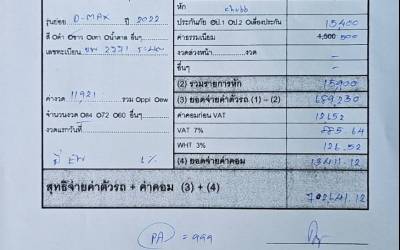 หัก
chubb
รุ่นย่อย D-MAX ปี 2022
ประกันภัย ป.1 ป.2 เบี้ยประกัน 15,400
สี ดำ ขาว เทา น้ำตาล อื่นๆ
ค่าธรรมเนียม 4,500 500
เลขทะเบียน
งวดล่วงหน้า งวด -
อื่นๆ -
(2) รวมรายการหัก 15,900
ค่างวด 11,921 รวม
(3) ยอดจ่ายค่าตัวรถ (1) - (2) 689,230
จำนวนงวด 84 72 60 อื่นๆ
ค่าคอมก่อน VAT 12652
งวดแรกวันที่
VAT 7% 885.64
WHT 3% 126.52
(4) ยอดจ่ายค่าคอม 13411.12
สุทธิจ่ายค่าตัวรถ + ค่าคอม (3) + (4)
702641.12
PA = 999